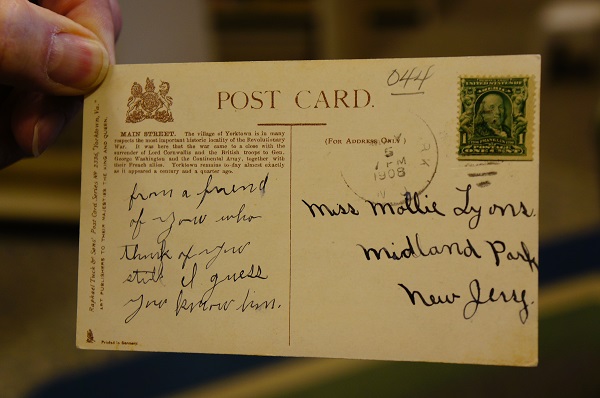 044
POST CARD.
MAIN STREET. The village of Yorktown is in many
respects the most important historic locality of the Revolutionary
War. It was here that the war came to a close with the
surrender of Lord Cornwallis and the British troops to Gen.
George Washington and the Continental Army, together with
their French allies. Yorktown remains to-day almost exactly
as it appeared a century and a quarter ago.
(FOR ADDRESS ONLY)
from a friend
of your who
think of you
still I guess
you know him.
Miss Mollie Lyons.
Midland Park
New Jersy.
5
PM
1908
N
Raphael Tuck & Sons' Post Card Series "Yorktown, Va."
ART PUBLISHERS TO THEIR MAJESTIES THE KING AND QUEEN.